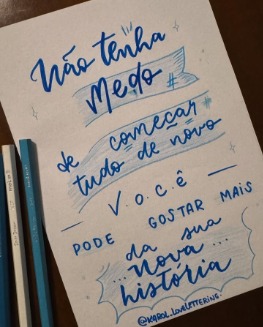 Não tenha
Medo
#
de começar #
tudo de novo
V.o.c.ê
PODE GOSTAR MAIS
da sua
...Nova...
história
@KAROL_LOVELETTERING.